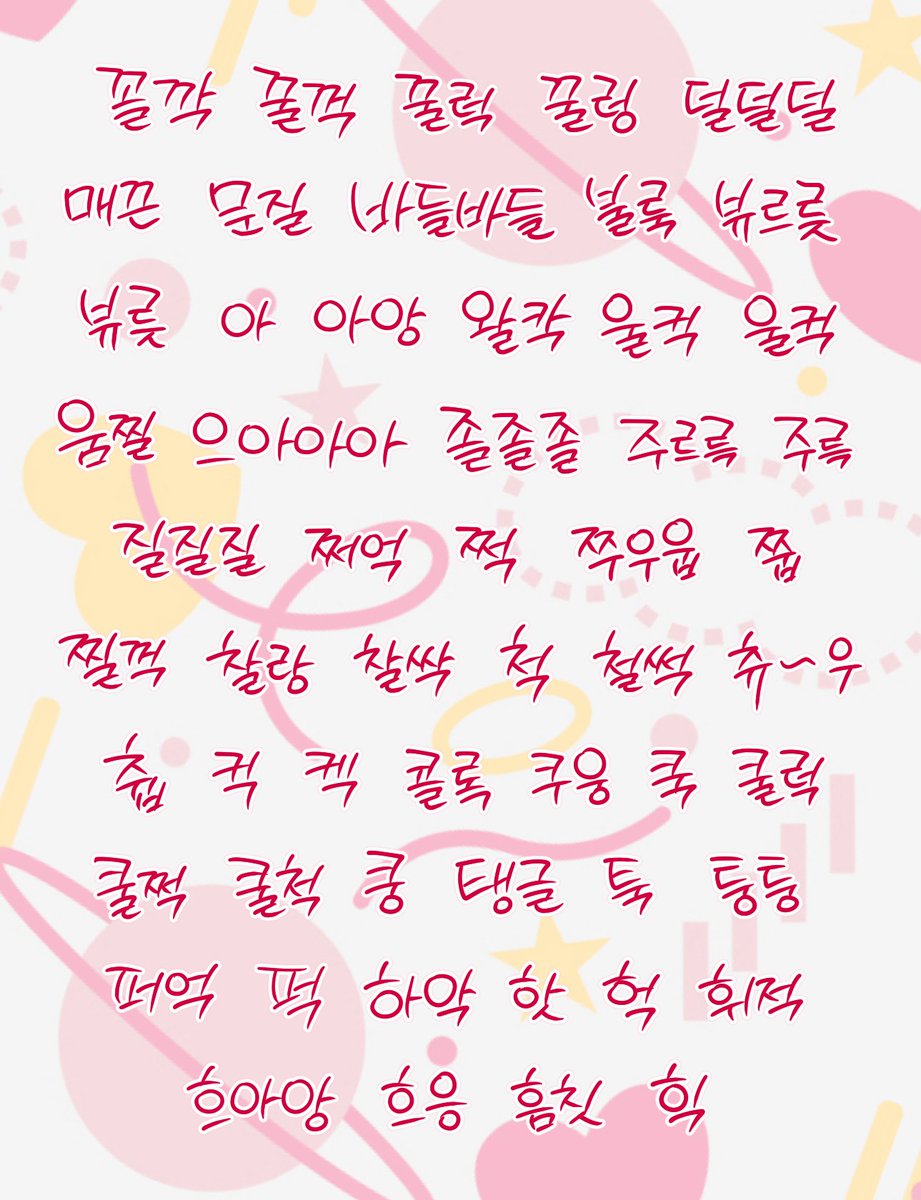 꼴깍 꿀꺽 꿀럭 꿀렁 덜덜덜
매끈 문질 바들바들 불룩 뷰르릇
뷰릇 아 아앙 왈칵 울컥 울컥
움찔 으아아아 졸졸졸 주르륵 주륵
질질질 쩌억 쩍 쭈우웁 쭙
찔꺽 찰랑 찰싹 척 철썩 츄~우
츕 컥 켁 콜록 쿠웅 쿡 쿨럭
쿨쩍 쿨척 쿵 탱글 툭 퉁퉁
퍼억 퍽 하악 핫 헉 휘적
흐아앙 흐응 흠칫 힉